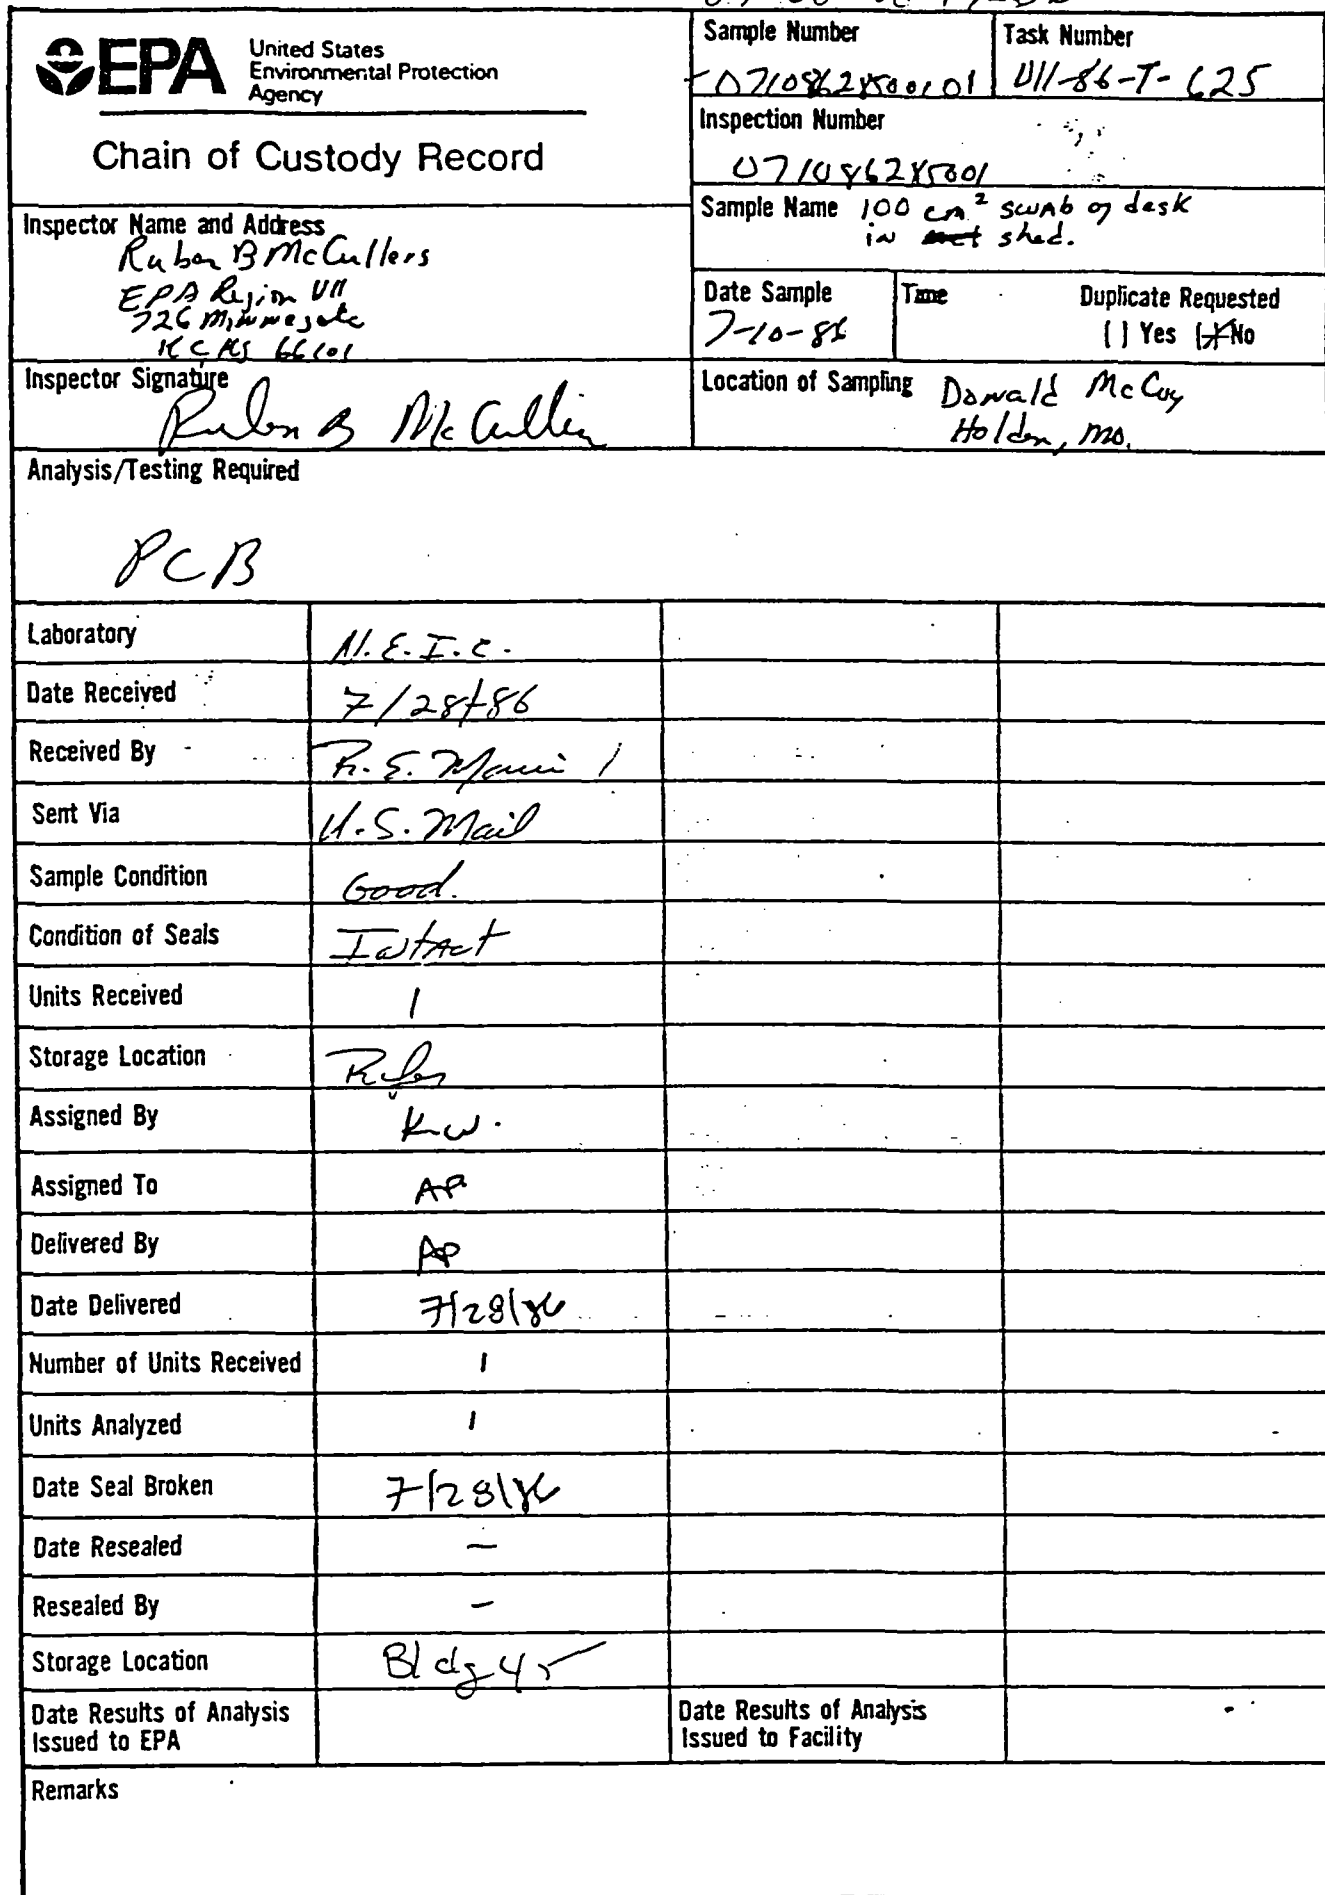 EPA
United States
Environmental Protection
Agency
Chain of Custody Record
Sample Number
07108628500101
Task Number
VII-86-T-625
Inspection Number
071086285001
Inspector Name and Address
Ruben B McCullers
EPA Region VII
726 Minnesota
KC KS 66101
Sample Name 100 cm² swab of desk
in shed.
Date Sample
7-10-86
Time
Duplicate Requested
( ) Yes (X) No
Inspector Signature
Ruben B McCullers
Location of Sampling Donald McCoy
Holden, Mo.
Analysis/Testing Required
PCB
Laboratory N.E.I.C.
Date Received 7/28/86
Received By R. E.
Sent Via U.S. Mail
Sample Condition Good.
Condition of Seals Intact
Units Received 1
Storage Location
Assigned By KW.
Assigned To AP
Delivered By AP
Date Delivered 7/28/86
Number of Units Received 1
Units Analyzed 1
Date Seal Broken 7/28/86
Date Resealed —
Resealed By —
Storage Location Bldg 45
Date Results of Analysis
Issued to EPA
Date Results of Analysis
Issued to Facility
Remarks